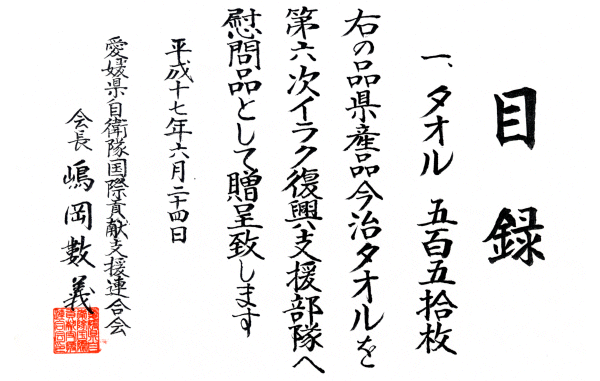 目録
一、タオル 五百五拾枚
右の品県産品今治タオルを
第六次イラク復興支援部隊へ
慰問品として贈呈致します
平成十七年六月二十四日
愛媛県自衛隊国際貢献支援連合会
会長 嶋岡數義